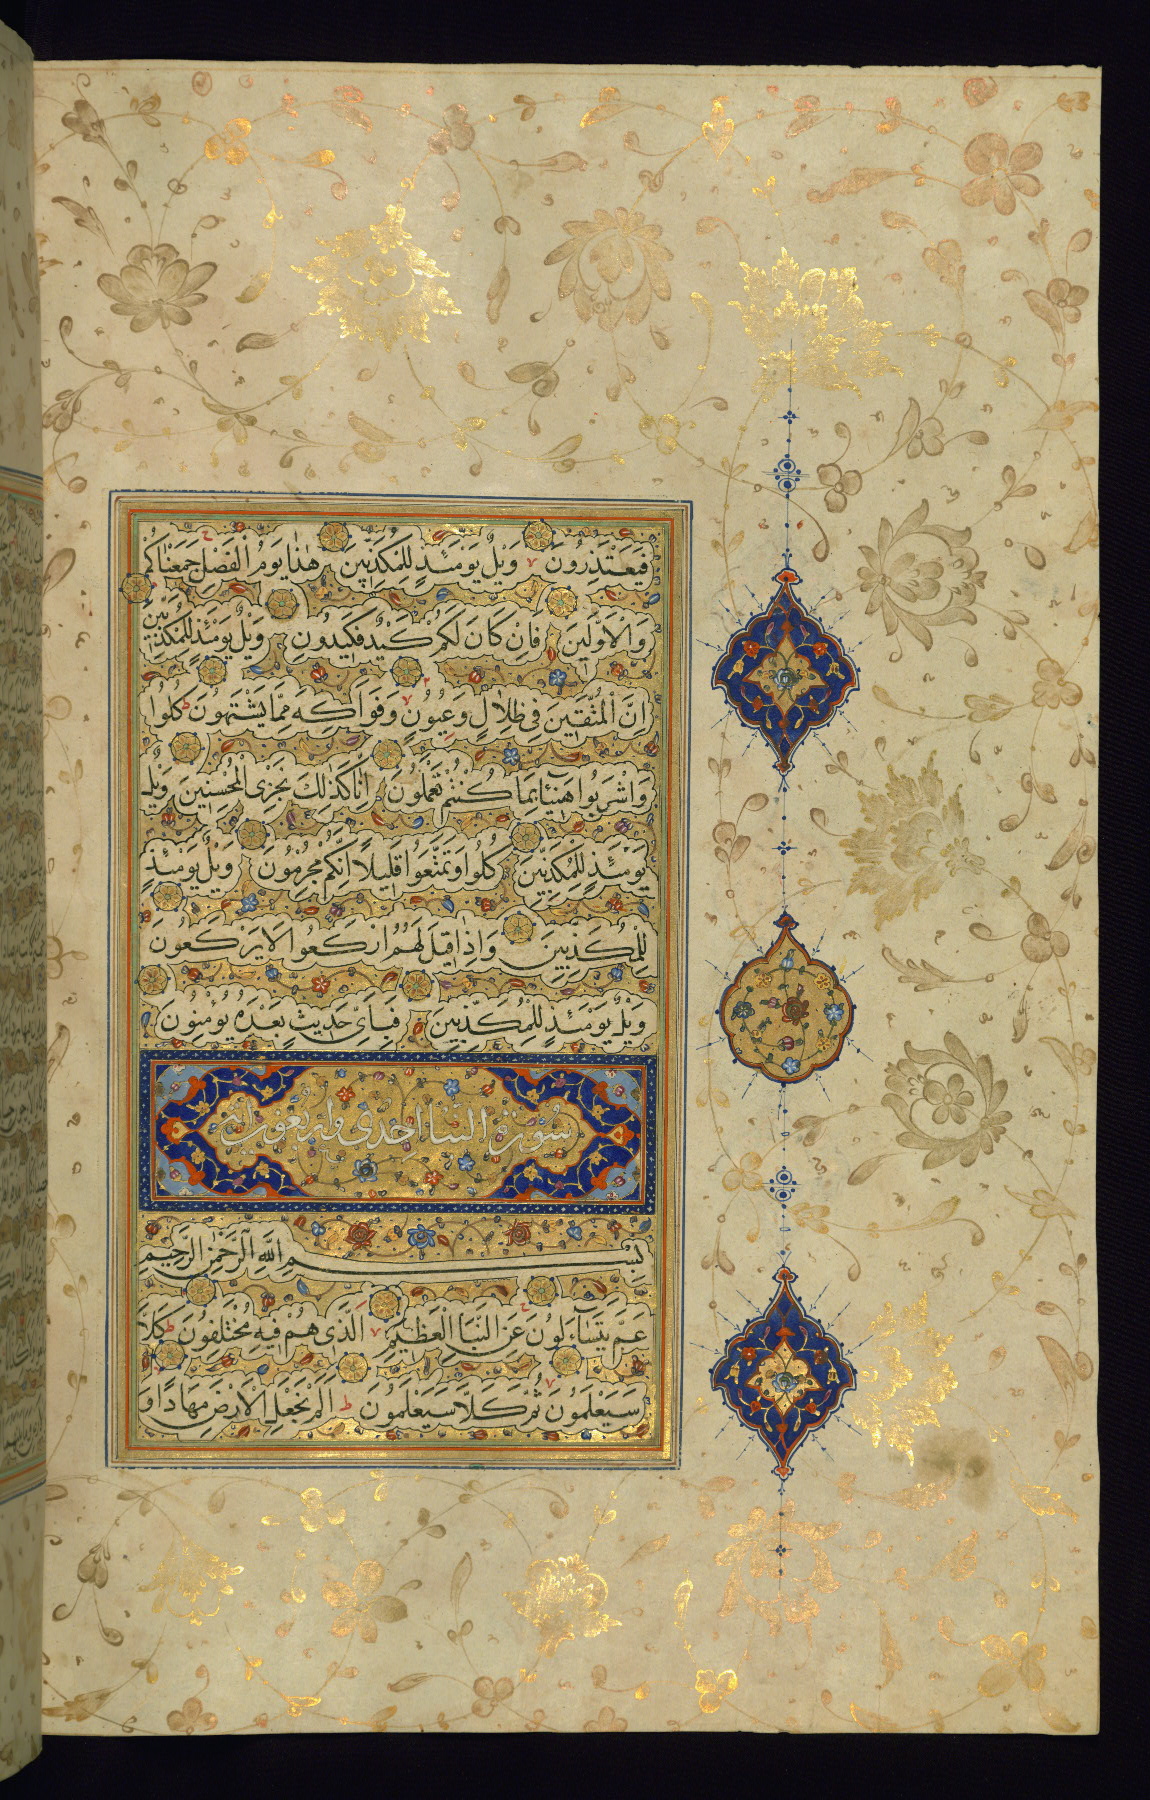 فَيَعْتَذِرُونَ وَيْلٌ يَوْمَئِذٍ لِلْمُكَذِّبِينَ هٰذَا يَوْمُ الْفَصْلِ جَمَعْنَاكُمْ
وَالْاَوَّلِينَ فَاِنْ كَانَ لَكُمْ كَيْدٌ فَكِيدُونِ وَيْلٌ يَوْمَئِذٍ لِلْمُكَذِّبِينَ
اِنَّ الْمُتَّقِينَ فِي ظِلَالٍ وَعُيُونٍ وَفَوَاكِهَ مِمَّا يَشْتَهُونَ كُلُوا
وَاشْرَبُوا هَنِيئًا بِمَا كُنْتُمْ تَعْمَلُونَ اِنَّا كَذٰلِكَ نَجْزِي الْمُحْسِنِينَ وَيْلٌ
يَوْمَئِذٍ لِلْمُكَذِّبِينَ كُلُوا وَتَمَتَّعُوا قَلِيلًا اِنَّكُمْ مُجْرِمُونَ وَيْلٌ يَوْمَئِذٍ
لِلْمُكَذِّبِينَ وَاِذَا قِيلَ لَهُمُ ارْكَعُوا لَا يَرْكَعُونَ
وَيْلٌ يَوْمَئِذٍ لِلْمُكَذِّبِينَ فَبِاَيِّ حَدِيثٍ بَعْدَهُ يُؤْمِنُونَ
سورة النبا احدى واربعون اية
بِسْمِ اللّٰهِ الرَّحْمٰنِ الرَّحِيمِ
عَمَّ يَتَسَاءَلُونَ عَنِ النَّبَاِ الْعَظِيمِ الَّذِي هُمْ فِيهِ مُخْتَلِفُونَ كَلَّا
سَيَعْلَمُونَ ثُمَّ كَلَّا سَيَعْلَمُونَ اَلَمْ نَجْعَلِ الْاَرْضَ مِهَادًا وَ